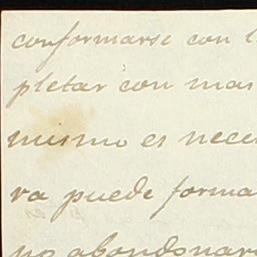 conformarse con l
pletar con mas
mismo es nece
va puede forma
no abandonar